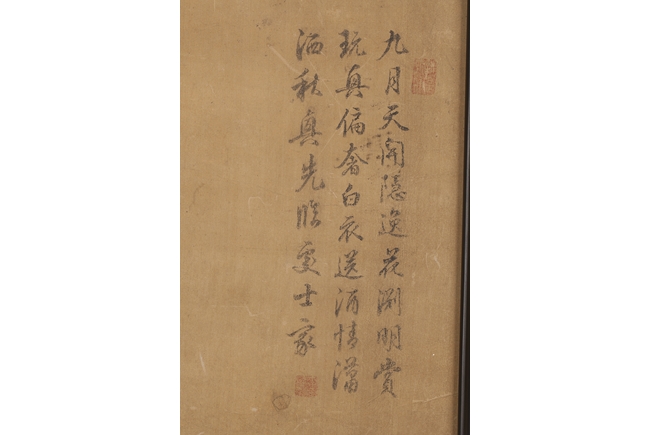 九月天開隱逸花淵明賞
玩興偏奢白衣送酒情瀟
洒秋興先臨處士家